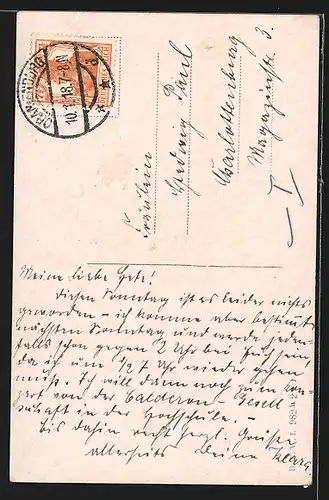 10.3.18.7-8N
Fräulein
Hedwig Paul
Charlottenburg
Magazinstr. 3.
Meine liebe Hete!
Diesen Sonntag ist es leider nichts
geworden – ich komme aber bestimmt
nächsten Sonntag und werde jeden-
falls schon gegen 2 Uhr bei Euch sein
da ich um 1/2 7 Uhr wieder gehen
muss. Ich will dann noch zum Kon-
zert von der Calderon-Gesell-
schaft in der Hochschule. –
Bis dahin recht herzl. Grüsse
allerseits Deine Klara.